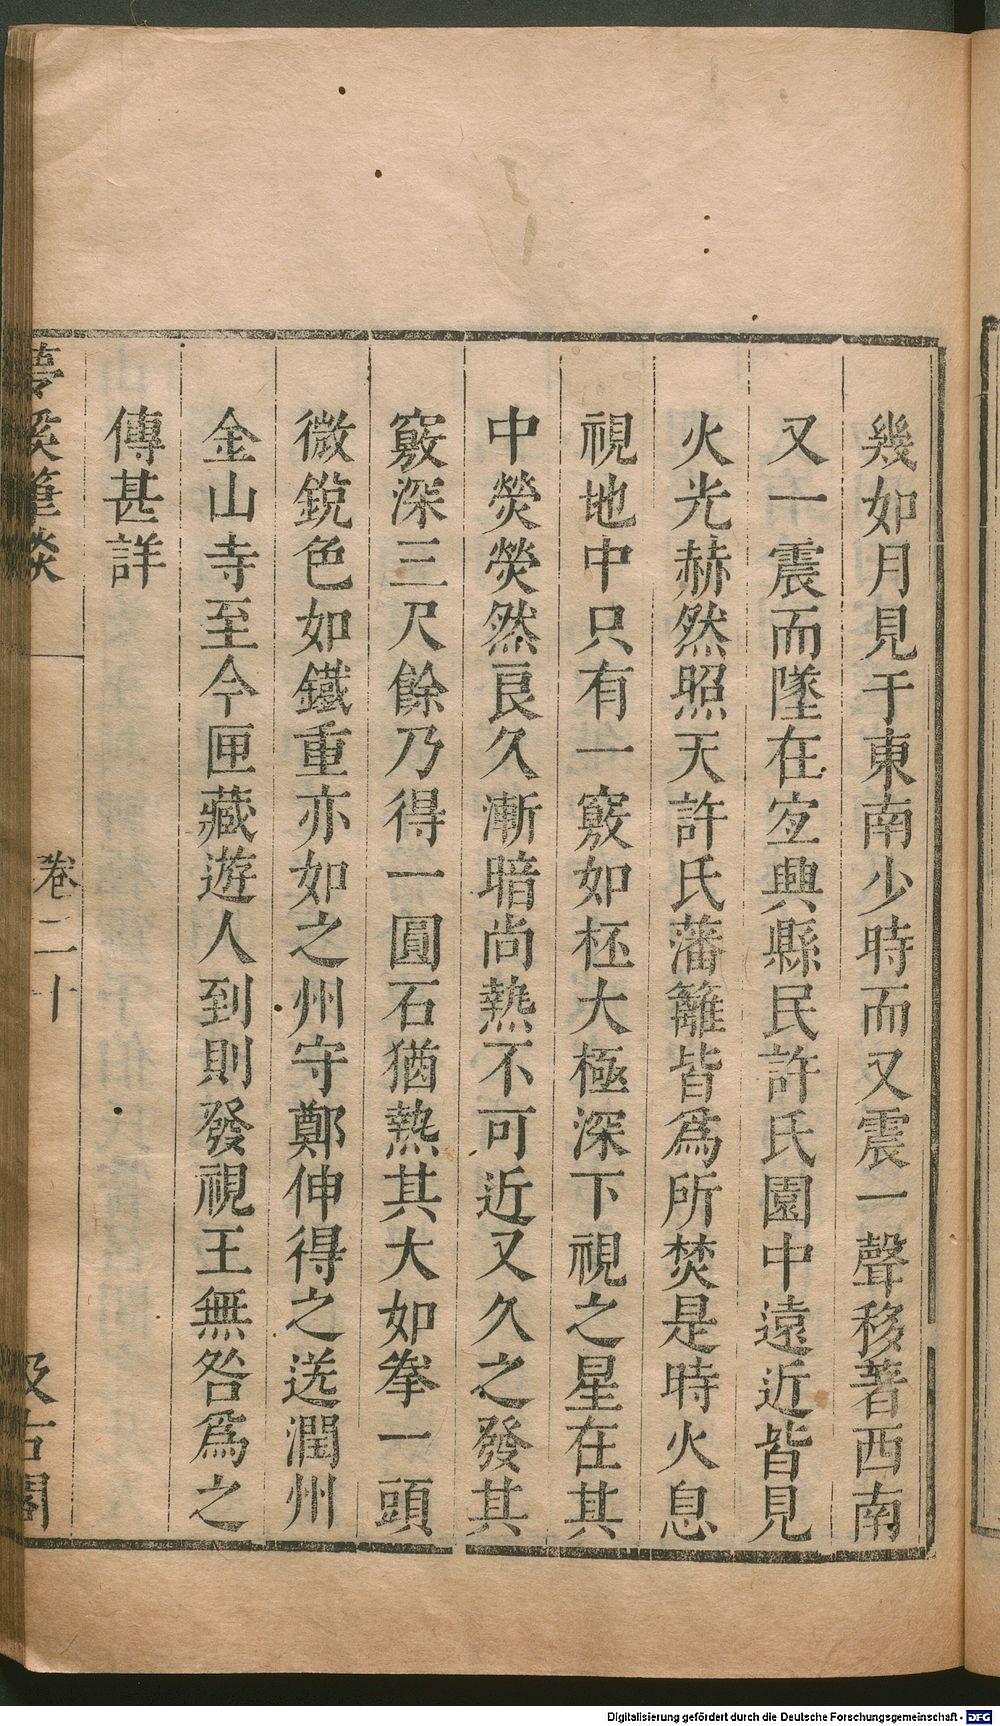 幾如月見于東南少時而又震一聲移著西南
又一震而墜在宐興縣民許氏園中遠近皆見
火光赫然照天許氏藩籬皆爲所焚是時火息
視地中只有一竅如桮大極深下視之星在其
中熒熒然良久漸暗尚熱不可近又久之發其
竅深三尺餘乃得一圓石猶熱其大如拳一頭
微銳色如鐵重亦如之州守鄭伸得之送潤州
金山寺至今匣藏遊人到則發視王無咎爲之
傳甚詳
夢溪筆談
卷二十
汲古閣
Digitalisierung gefördert durch die Deutsche Forschungsgemeinschaft - DFG